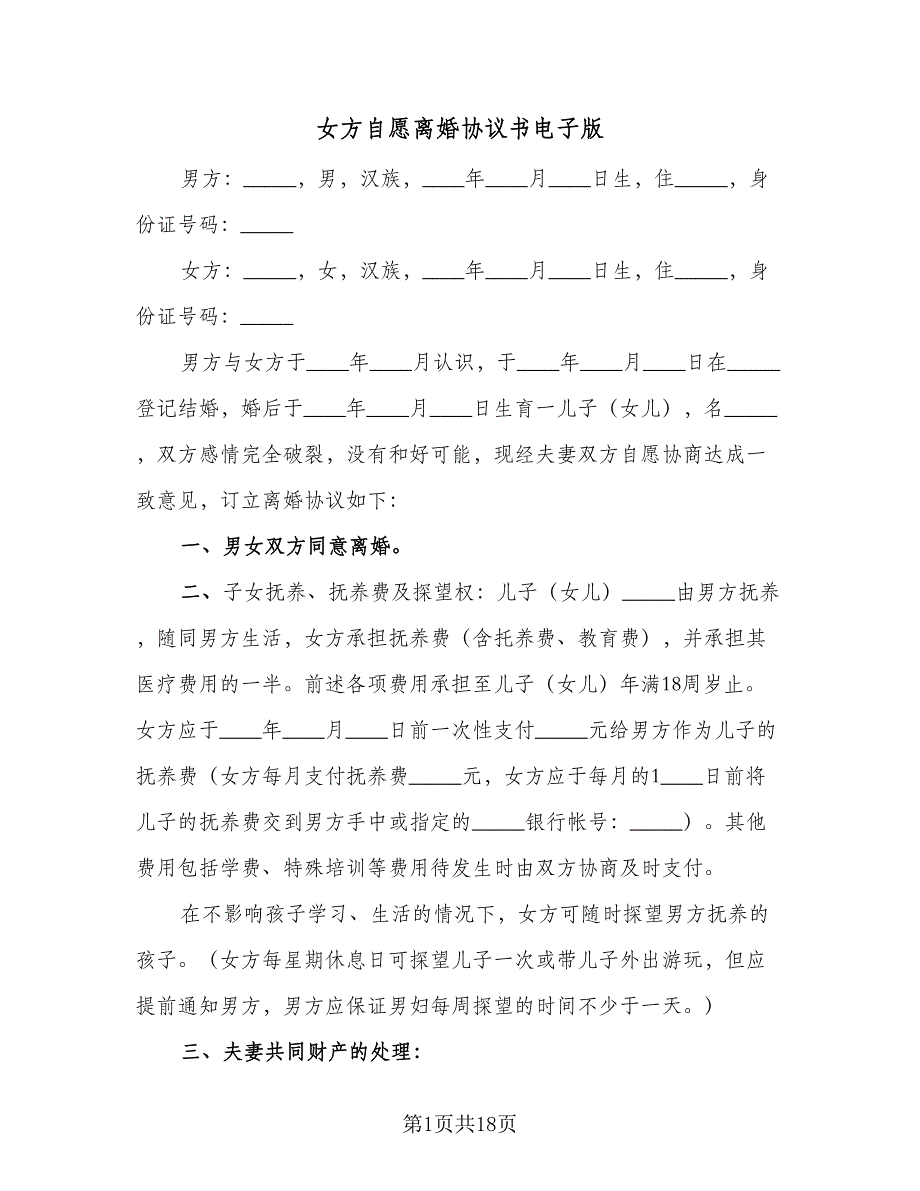 女方自愿离婚协议书电子版
男方：_____，男，汉族，____年____月____日生，住_____，身
份证号码：_____
女方：_____，女，汉族，____年____月____日生，住_____，身
份证号码：_____
男方与女方于____年____月认识，于____年____月____日在_____
登记结婚，婚后于____年____月____日生育一儿子（女儿），名_____
，双方感情完全破裂，没有和好可能，现经夫妻双方自愿协商达成一
致意见，订立离婚协议如下：
一、男女双方同意离婚。
二、子女抚养、抚养费及探望权：儿子（女儿）_____由男方抚养
，随同男方生活，女方承担抚养费（含托养费、教育费），并承担其
医疗费用的一半。前述各项费用承担至儿子（女儿）年满18周岁止。
女方应于____年____月____日前一次性支付_____元给男方作为儿子的
抚养费（女方每月支付抚养费_____元，女方应于每月的1____日前将
儿子的抚养费交到男方手中或指定的_____银行帐号：_____）。其他
费用包括学费、特殊培训等费用待发生时由双方协商及时支付。
在不影响孩子学习、生活的情况下，女方可随时探望男方抚养的
孩子。（女方每星期休息日可探望儿子一次或带儿子外出游玩，但应
提前通知男方，男方应保证男妇每周探望的时间不少于一天。）
三、夫妻共同财产的处理：
第1页共18页